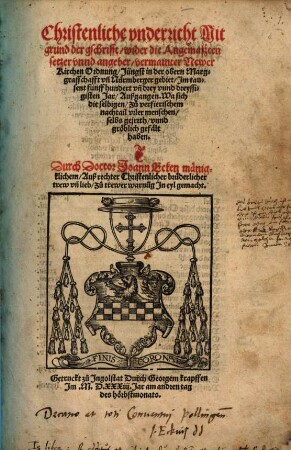 Christenliche vnderricht Mit
grund der gschrifft / wider die Angemaßten
setzer vnnd angeber / vermainter Newer
Kirchen Ordnung / Jüngst in der obern Marg-
graffschafft vñ Nürmberger gebiet / Im tau-
sent fünff hundert vñ drey vnnd dreyssi-
gisten Jar / Außgangen. Wa sich
die selbigen / zu verfierischem
nachtail viler menschen /
selbs geirrth / vnnd
gröblich gefält
haben.
Durch Doctor Joann Ecken mänig-
klichem / Auß rechter Christenlicher brüderlicher
trew vñ lieb / Zu trewer warnüg In eyl gemacht.
FINIS CORONAT
Getruckt zu Ingolstat Durch Georgem krapffen
Im M. D. XXXiij. Jar am andren tag
des hörbstmonats.
Decano et toti Conventui Pollingen
J Eckius dd